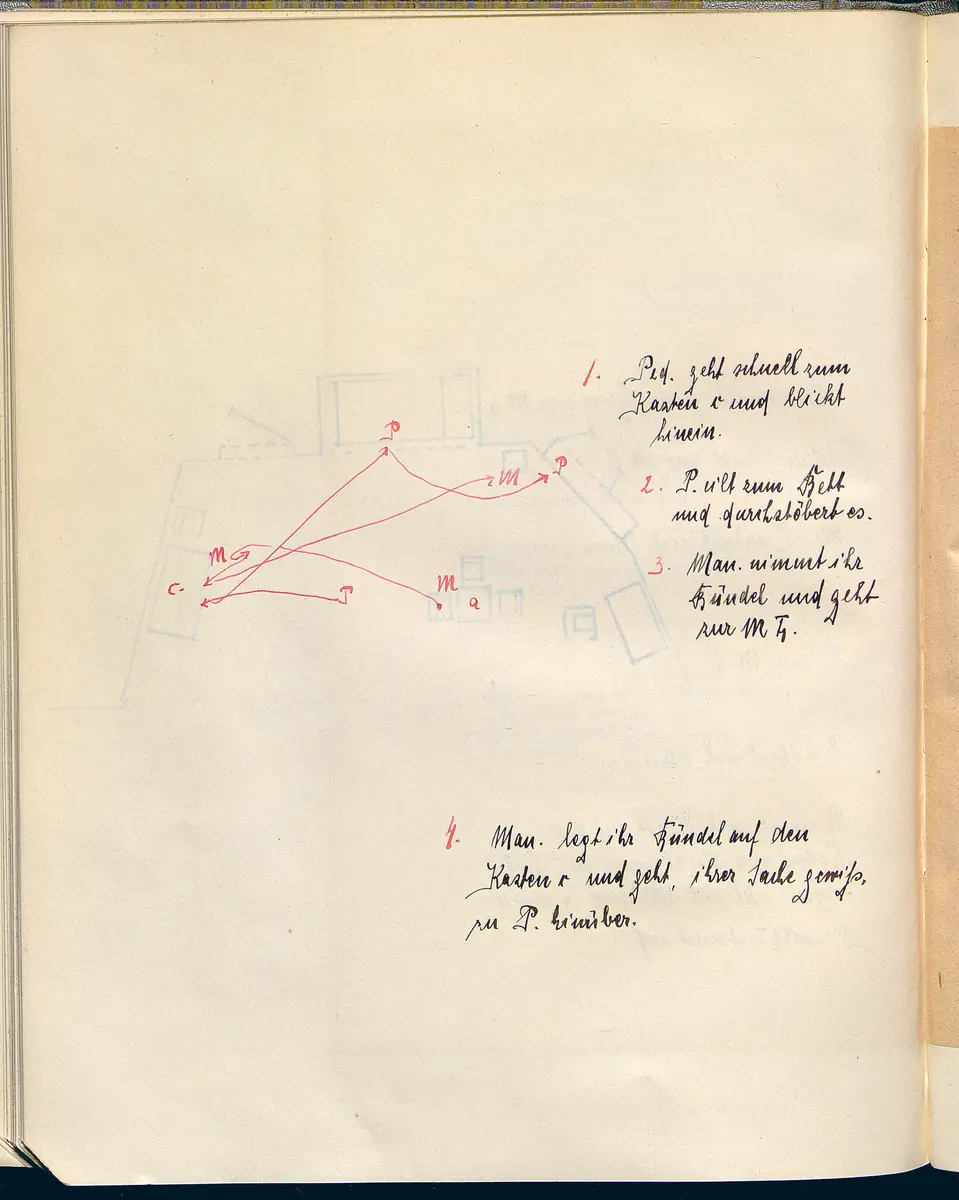 1. Ped. geht schnell zum
Kasten c und blickt
hinein.
P
M P
2. P. eilt zum Bett
und durchstöbert es.
M
c. P M a
3. Man. nimmt ihr
Bündel und geht
zur M
4. Man. legt ihr Bündel auf den
Kasten c und geht, ihrer Sache gewiß,
zu P. hinüber.